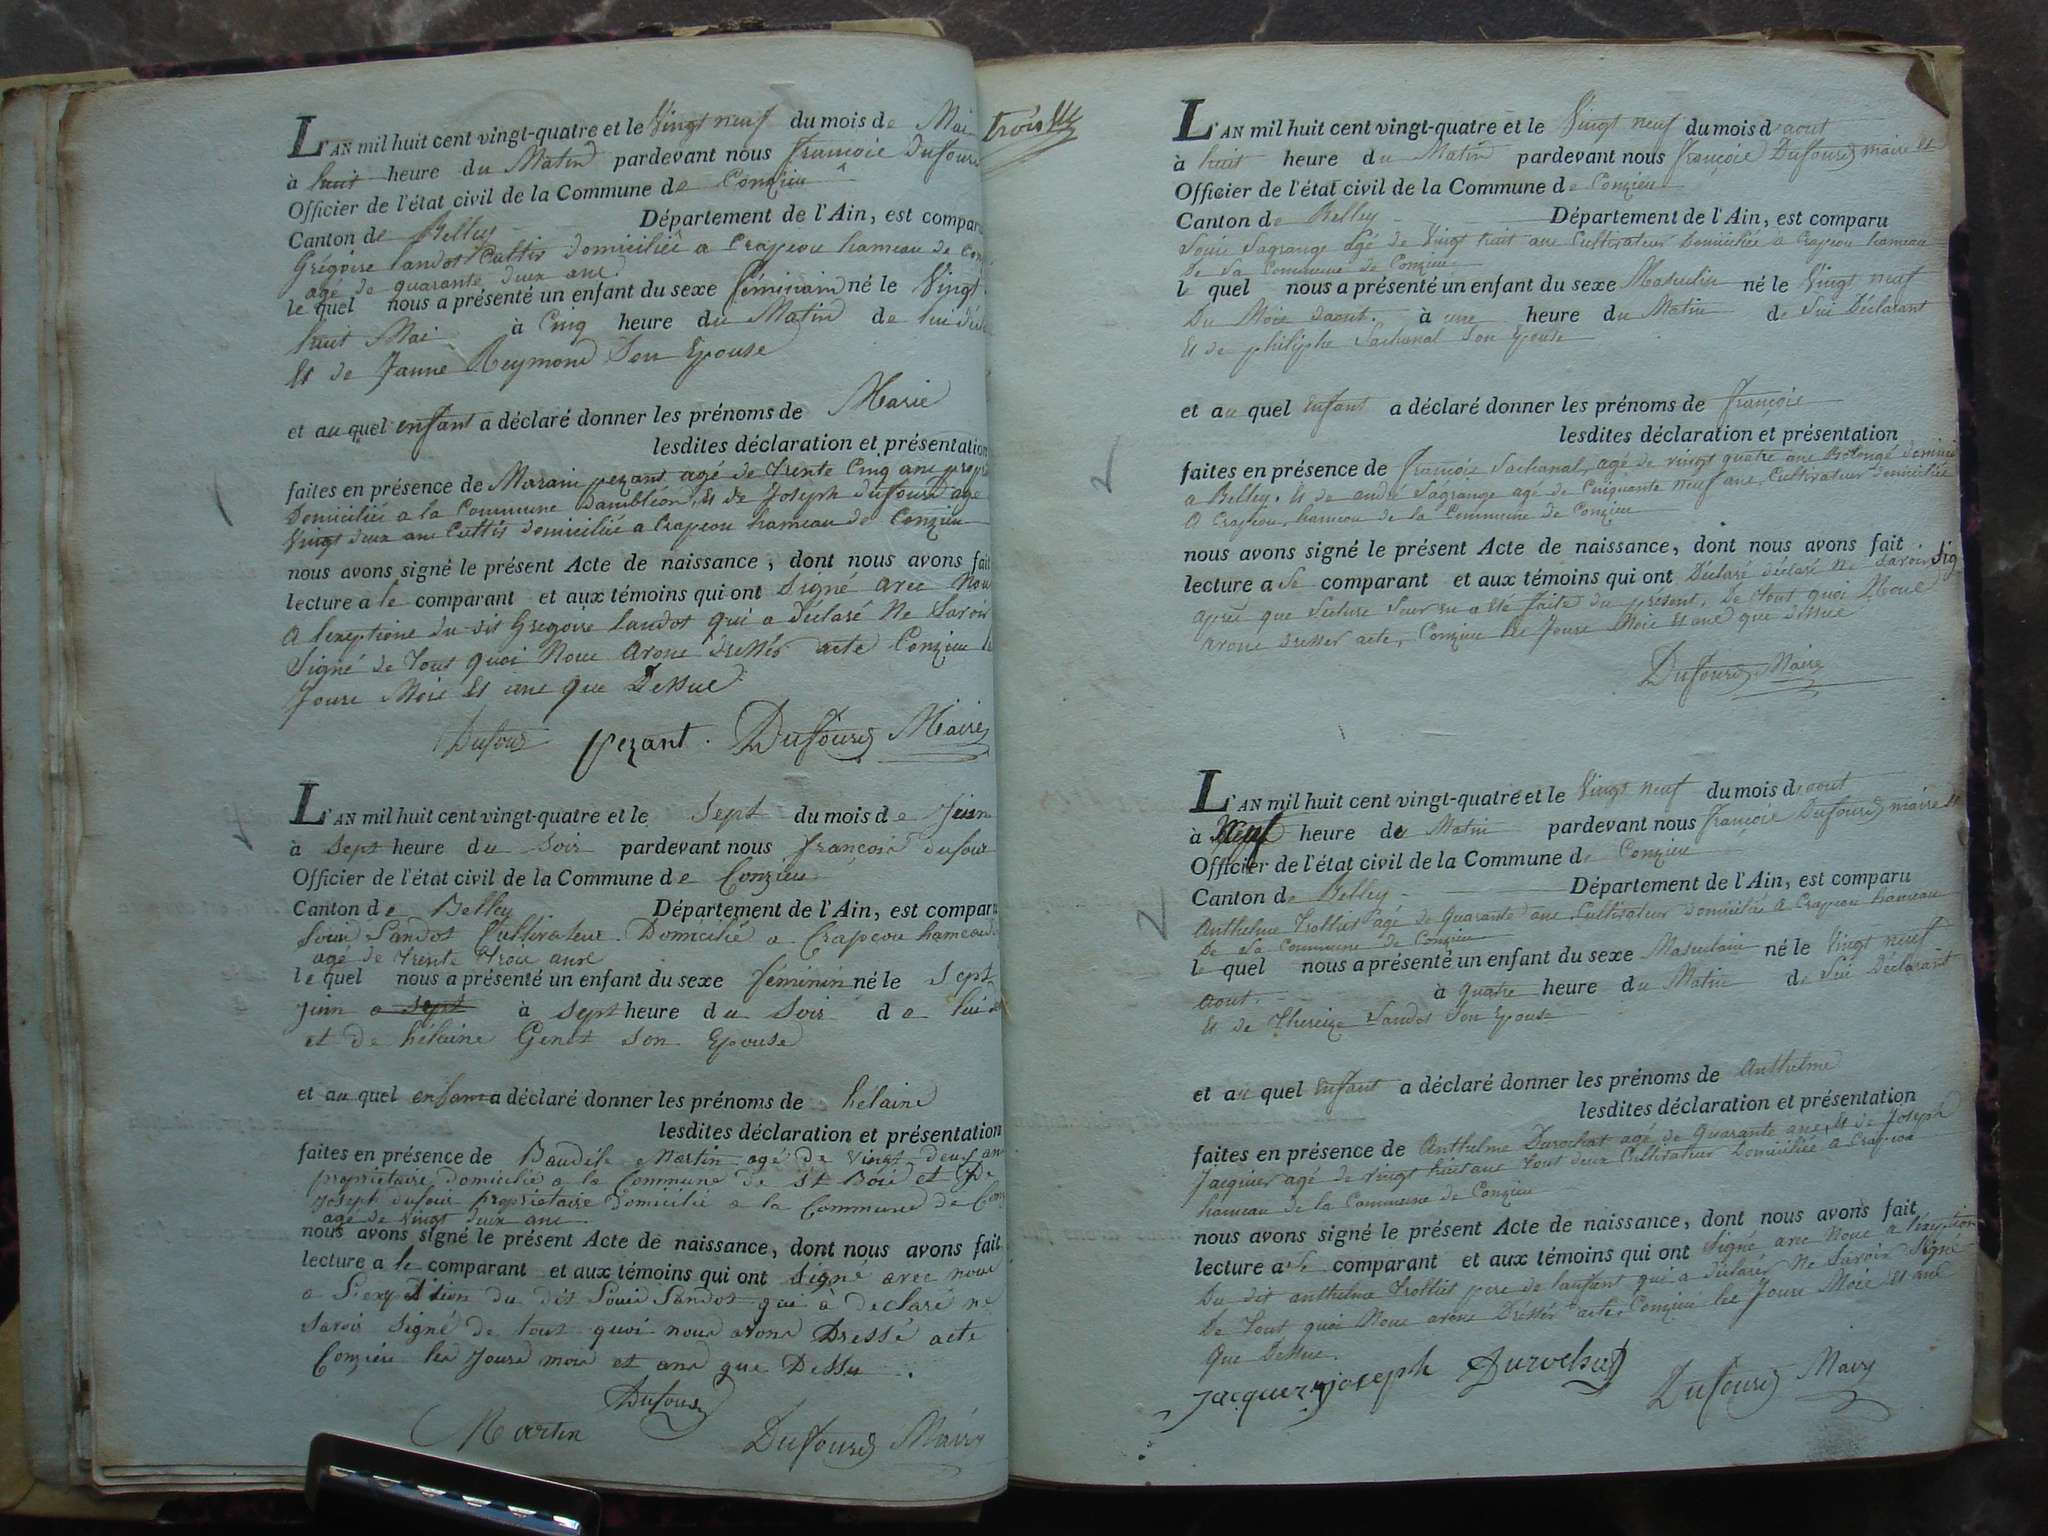 L'AN mil huit cent vingt-quatre et le Vingt neuf du mois de Mai
à huit heure du Matin pardevant nous françois Dufour
Officier de l'état civil de la Commune de Conzieu
Canton de Belley Département de l'Ain, est comparu
Grégoire landot Cultiv domiciliée a Crapeou hameau de
agé de quarante deux ans
le quel nous a présenté un enfant du sexe féminain né le Vingt
huit Mai à Cinq heure du Matin de lui
Et de Janne Reymond Son Epouse
et au quel enfant a déclaré donner les prénoms de Marie
lesdites déclaration et présentation
faites en présence de pezant agé de trente Cinq ans
Domicilié a la Commune Et de Joseph dufour agé
Vingt deux ans domicilié a Crapeou hameau de Conzieu
nous avons signé le présent Acte de naissance, dont nous avons fait
lecture a le comparant et aux témoins qui ont Signé avec Nous
A du dit Gregoire landot qui a déclaré Ne Savoir
Signé de Tout quoi Nous avons dressés acte Conzieu
Jours Mois Et ans que Dessus
Dufour pezant. Dufour Maire
L'AN mil huit cent vingt-quatre et le Sept du mois de Juin
à Sept heure du Soir pardevant nous françois dufour
Officier de l'état civil de la Commune de Conzieu
Canton de Belley Département de l'Ain, est comparu
Louis Landot Cultivateur Domicilié a Crapeou hameau
agé de trente trois ans
le quel nous a présenté un enfant du sexe féminin né le Sept
Juin a sept à sept heure du Soir de lui
et de hélaine Genet Son Epouse
et au quel enfant a déclaré donner les prénoms de hélaine
lesdites déclaration et présentation
faites en présence de Martin agé de vingt deux ans
propriétaire domicilié a la Commune de St Bois et de
Joseph dufour propriétaire domicilié a la Commune de
agé de vingt deux ans
nous avons signé le présent Acte de naissance, dont nous avons fait
lecture a le comparant et aux témoins qui ont Signé avec nous
a du dit Louis Landot qui à declaré ne
Savoir Signé de tout quoi nous avons Dressé acte
Conzieu les jours mois et ans que Dessu.
Dufour
Martin Dufour Maire
L'AN mil huit cent vingt-quatre et le Vingt neuf du mois d'aout
à huit heure du Matin pardevant nous françois Dufour maire Et
Officier de l'état civil de la Commune de Conzieu
Canton de Belley Département de l'Ain, est comparu
Louis Lagrange Agé de Vingt huit ans Cultivateur Domiciliée a Crapeou hameau
De La Commune de Conzieu
le quel nous a présenté un enfant du sexe Masculin né le Vingt neuf
Du Mois d'aout. à une heure du Matin de Lui Déclarant
Et de philiphe Lachanal Son Epouse
et au quel Enfant a déclaré donner les prénoms de françois
lesdites déclaration et présentation
faites en présence de françois Lachanal, agé de vingt quatre ans
a Belley. Et de andré Lagrange agé de Cinquante neuf ans, Cultivateur domiciliée
A Crapeou, hameau de la Commune de Conzieu
nous avons signé le présent Acte de naissance, dont nous avons fait
lecture a Le comparant et aux témoins qui ont Déclaré déclaré Ne Savoir Sig
après que Lecture Leur en a été faite du présent, De Tout quoi Nous
avons dresser acte, Conzieu les Jours Mois et ans que dessus
Dufour Maire
L'AN mil huit cent vingt-quatre et le Vingt neuf du mois d'aout
à heure du Matin pardevant nous françois Dufour maire Et
Officier de l'état civil de la Commune de Conzieu
Canton de Belley Département de l'Ain, est comparu
Anthelme Trolliet agé de Quarante ans Cultivateur domiciliée A Crapeou hameau
De La Commune de Conzieu
le quel nous a présenté un enfant du sexe Masculain né le Vingt neuf
aout. à quatre heure du Matin de Lui Déclarant
Et de Thereize Landot Son Epouse
et au quel Enfant a déclaré donner les prénoms de Anthelme
lesdites déclaration et présentation
faites en présence de Anthelme Durochat agé de Quarante ans, Et de Joseph
Jacquier agé de vingt huit ans Tout deux Cultivateur Domiciliée A Crapeou
hameau de la Commune de Conzieu
nous avons signé le présent Acte de naissance, dont nous avons fait
lecture a Le comparant et aux témoins qui ont Signé avec Nous a l'exeption
Du dit anthelme Trolliet pere de lanfant qui a déclarer Ne Savoir Signé
De Tout quoi Nous avons Dressér acte, Conzieu les Jours Mois Et ans
Que Dessus.
joseph Durochat Dufour Maire